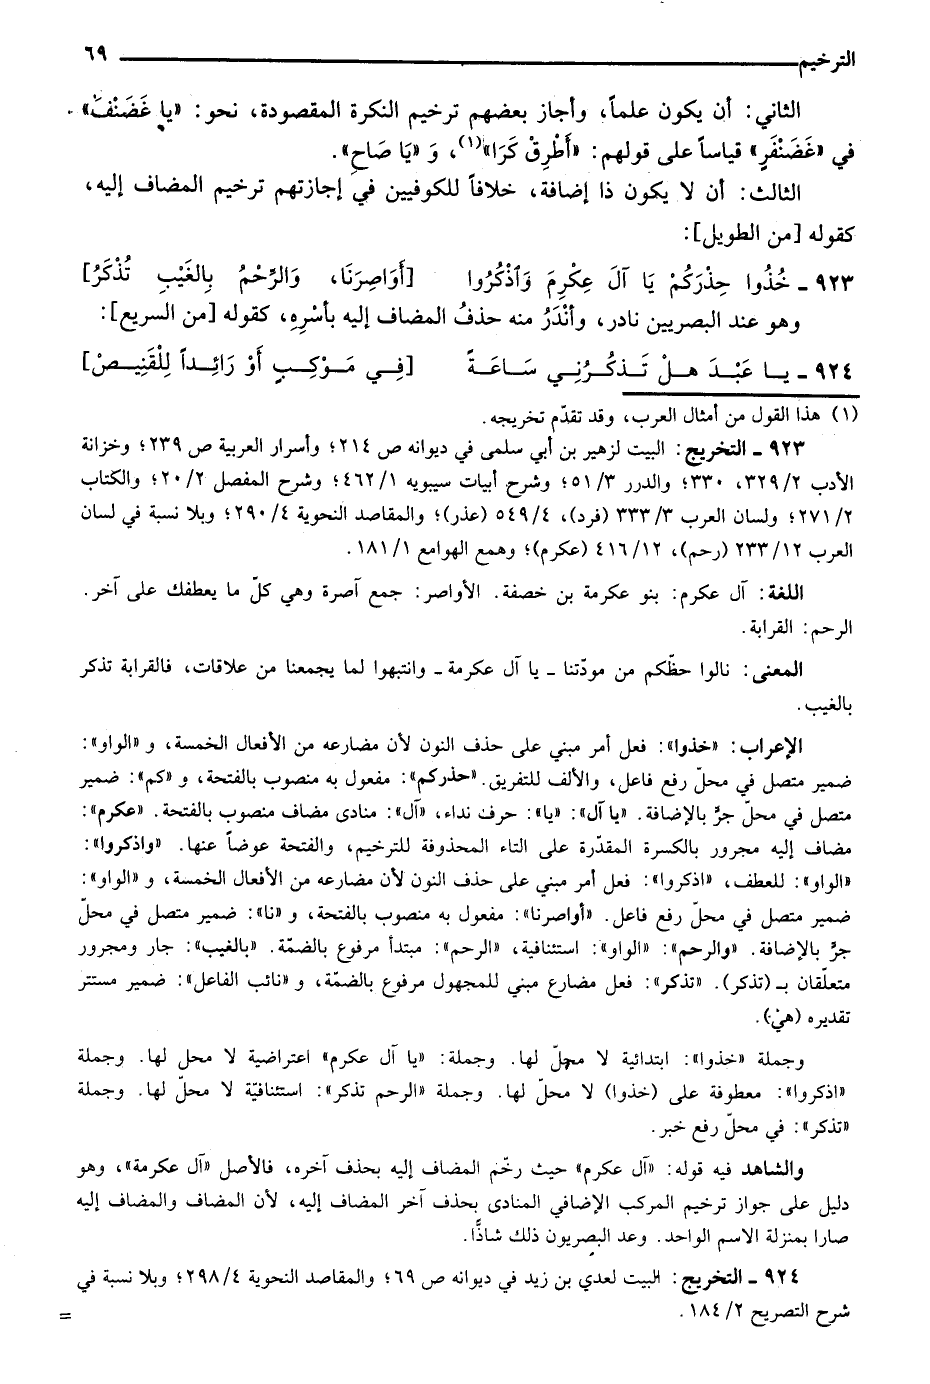 الترخيم ٦٩
الثاني: أن يكون علماً، وأجاز بعضهم ترخيم النكرة المقصودة، نحو: «يا غَضَنْفَ»
في «غَضَنْفَرٍ» قياساً على قولهم: «أَطْرِقْ كَرَا»(١)، وَ «يَا صَاحِ».
الثالث: أن لا يكون ذا إضافة، خلافاً للكوفيين في إجازتهم ترخيم المضاف إليه،
كقوله [من الطويل]:
٩٢٣ ـ خُذُوا حِذْرَكُمْ يَا آلَ عِكْرِمَ وَٱذْكُرُوا [أَوَاصِرَنَا، وَالرِّحْمُ بِالغَيْبِ تُذْكَرُ]
وهو عند البصريين نادر، وأَنْدَرُ منه حذفُ المضاف إليه بأسْرِهِ، كقوله [من السريع]:
٩٢٤ ـ يــا عَبْـدَ هــلْ تَـذكُـرُنِـي سَـاعَـةً [فِـي مَـوْكِـبٍ أَوْ رَائِـداً لِلْقَنِيـصْ]
(١) هذا القول من أمثال العرب، وقد تقدّم تخريجه.
٩٢٣ ـ التخريج: البيت لزهير بن أبي سلمى في ديوانه ص ٢١٤؛ وأسرار العربية ص ٢٣٩؛ وخزانة
الأدب ٣٢٩/٢، ٣٣٠؛ والدرر ٥١/٣؛ وشرح أبيات سيبويه ٤٦٢/١؛ وشرح المفصل ٢٠/٢؛ والكتاب
٢٧١/٢؛ ولسان العرب ٣٣٣/٣ (فرد)، ٥٤٩/٤ (عذر)؛ والمقاصد النحوية ٢٩٠/٤؛ وبلا نسبة في لسان
العرب ٢٣٣/١٢ (رحم)، ٤١٦/١٢ (عكرم)؛ وهمع الهوامع ١٨١/١.
اللغة: آل عكرم: بنو عكرمة بن خصفة. الأواصر: جمع آصرة وهي كلّ ما يعطفك على آخر.
الرحم: القرابة.
المعنى: نالوا حظّكم من مودّتنا ـ يا آل عكرمة ـ وانتبهوا لما يجمعنا من علاقات، فالقرابة تذكر
بالغيب.
الإعراب: «خذوا»: فعل أمر مبني على حذف النون لأن مضارعه من الأفعال الخمسة، و «الواو»:
ضمير متصل في محلّ رفع فاعل، والألف للتفريق. «حذركم»: مفعول به منصوب بالفتحة، و «كم»: ضمير
متصل في محلّ جرّ بالإضافة. «يا آل»: «يا»: حرف نداء، «آل»: منادى مضاف منصوب بالفتحة. «عكرم»:
مضاف إليه مجرور بالكسرة المقدّرة على التاء المحذوفة للترخيم، والفتحة عوضاً عنها. «واذكروا»:
«الواو»: للعطف، «اذكروا»: فعل أمر مبني على حذف النون لأن مضارعه من الأفعال الخمسة، و «الواو»:
ضمير متصل في محلّ رفع فاعل. «أواصرنا»: مفعول به منصوب بالفتحة، و «نا»: ضمير متصل في محلّ
جرّ بالإضافة. «والرحم»: «الواو»: استئنافية، «الرحم»: مبتدأ مرفوع بالضمّة. «بالغيب»: جار ومجرور
متعلّقان بـ (تذكر). «تذكر»: فعل مضارع مبني للمجهول مرفوع بالضمّة، و «نائب الفاعل»: ضمير مستتر
تقديره (هي).
وجملة «خذوا»: ابتدائية لا محلّ لها. وجملة: «يا آل عكرم» اعتراضية لا محل لها. وجملة
«اذكروا»: معطوفة على (خذوا) لا محلّ لها. وجملة «الرحم تذكر»: استئنافيّة لا محلّ لها. وجملة
«تذكر»: في محلّ رفع خبر.
والشاهد فيه قوله: «آل عكرم» حيث رخّم المضاف إليه بحذف آخره، فالأصل «آل عكرمة»، وهو
دليل على جواز ترخيم المركب الإضافي المنادى بحذف آخر المضاف إليه، لأن المضاف والمضاف إليه
صارا بمنزلة الاسم الواحد. وعد البصريون ذلك شاذًّا.
٩٢٤ ـ التخريج: البيت لعدي بن زيد في ديوانه ص ٦٩؛ والمقاصد النحوية ٢٩٨/٤؛ وبلا نسبة في
شرح التصريح ١٨٤/٢. =